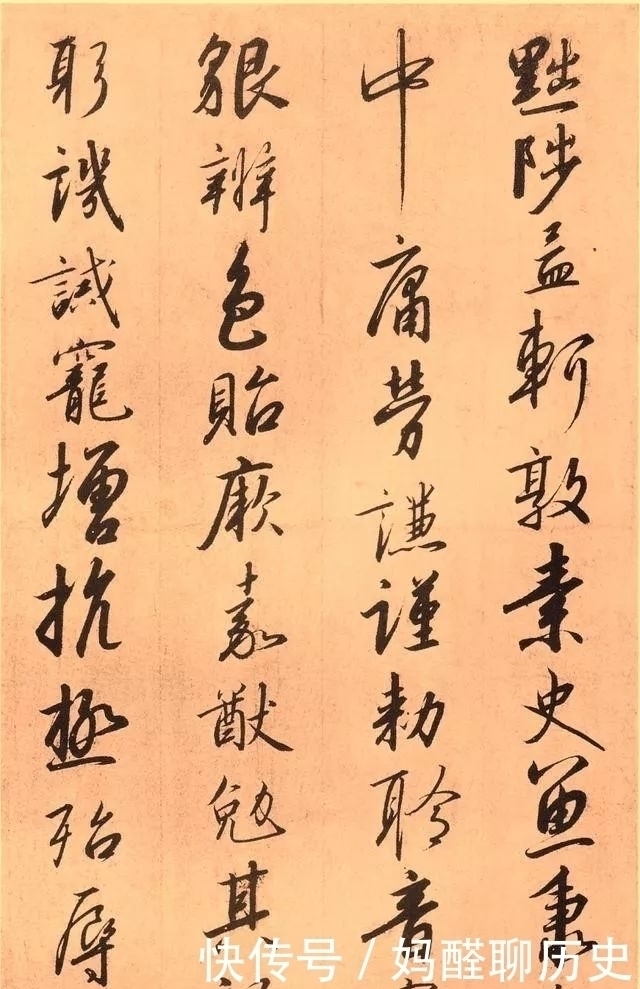 黜陟孟軻敦素史魚秉
中庸勞謙謹勑聆音
貌辨色貽厥嘉猷勉其
躬譏誡寵增抗極殆辱
快传号 / 妈醒聊历史